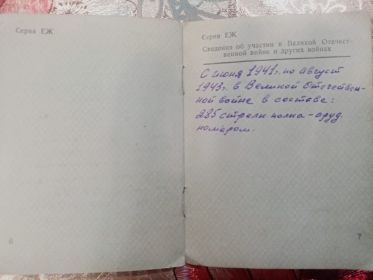 Серия ЕЖ
6
Серия ЕЖ
Сведения об участии в Великой Отечест-
венной войне и других войнах
С июня 1941г. по август
1943г. в Великой Отечествен-
ной войне в составе:
285 стрелк. полка - оруд.
номером.
7